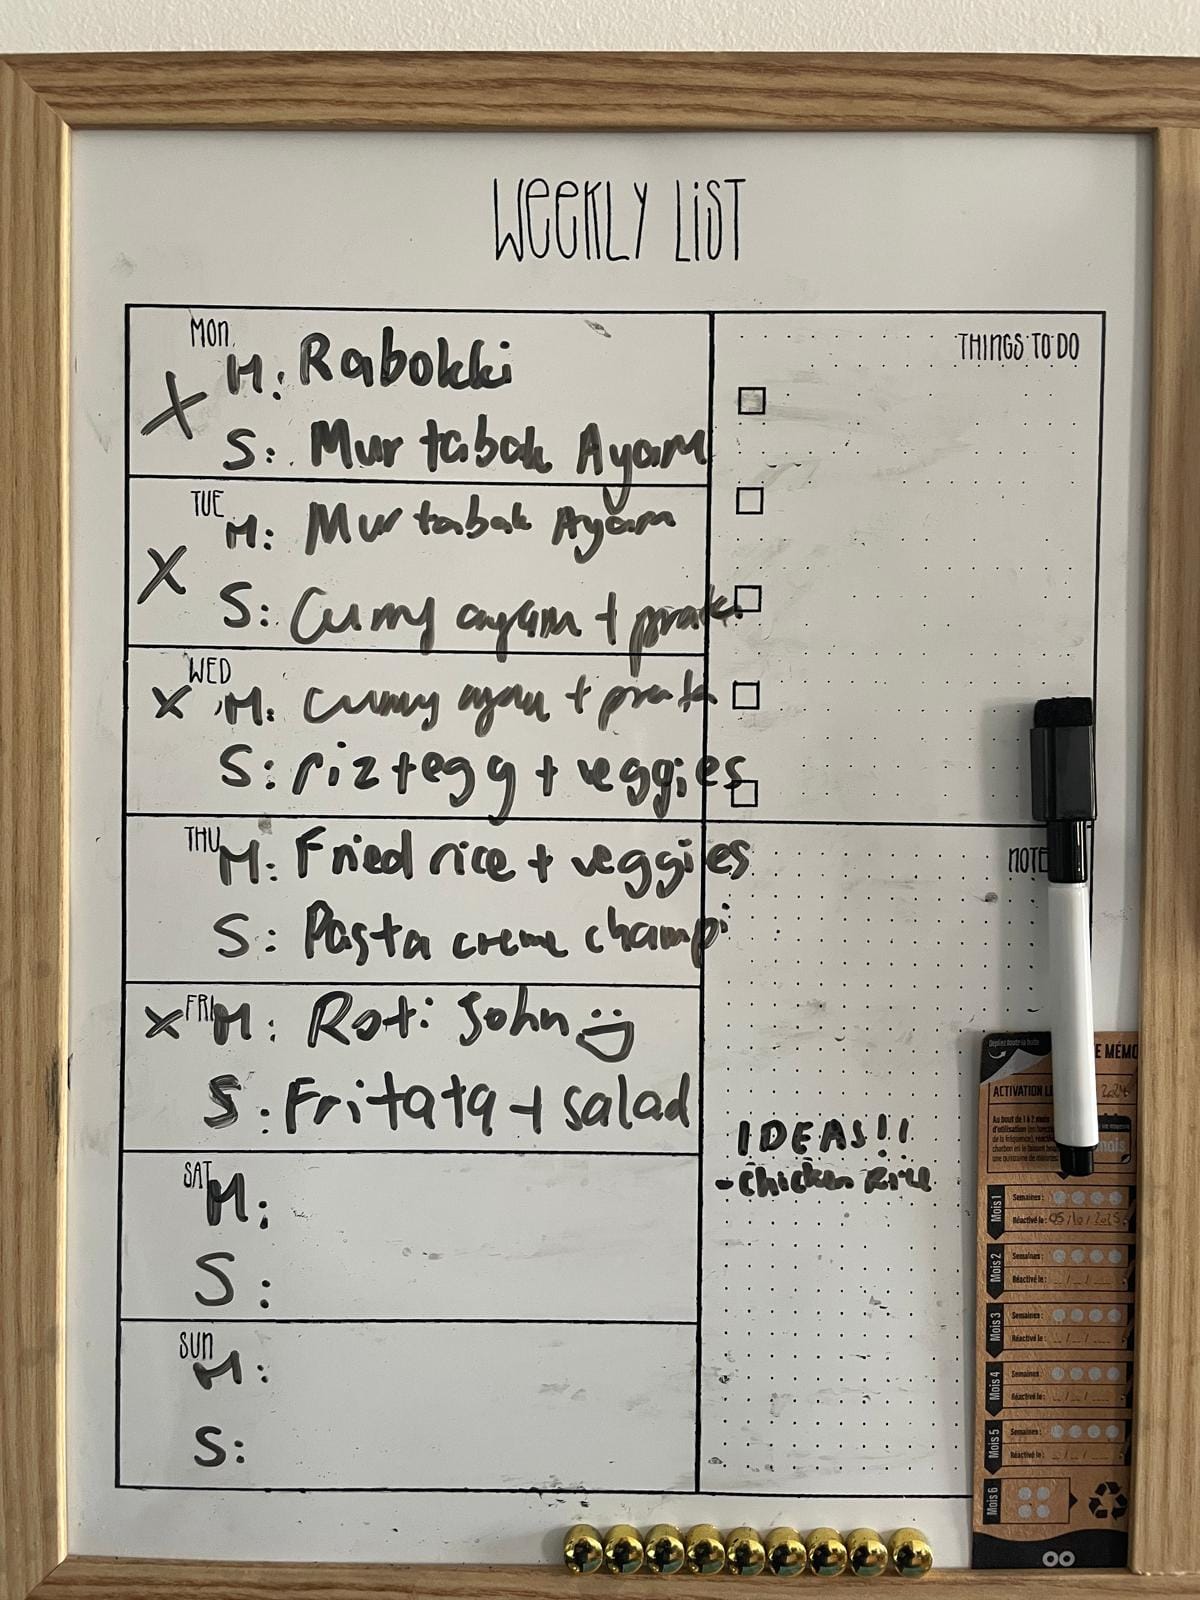 WEEKLY LIST
MON
M: Rabokki
X
S: Murtabak Ayam
TUE
M: Murtabak Ayam
X
S: Curry ayam + prata
WED
X M: Curry ayam + prata
S: riz + egg + veggies
THU
M: Fried rice + veggies
S: Pasta creme champi
FRI
X M: Roti John
S: Fritata + salad
SAT
M:
S:
SUN
M:
S:
THINGS TO DO
NOTE
IDEAS!!
- Chicken Rice
Dépliez toute la boîte
E MÉMO
ACTIVATION LE
Au bout de 1 à 2 mois
d'utilisation (en fonction
de la fréquence), réactivez
une quinzaine de minutes.
Mois 1
Semaines :
Réactivé le : 05/10/2025
Mois 2
Semaines :
Réactivé le :
Mois 3
Semaines :
Réactivé le :
Mois 4
Semaines :
Réactivé le :
Mois 5
Semaines :
Réactivé le :
Mois 6